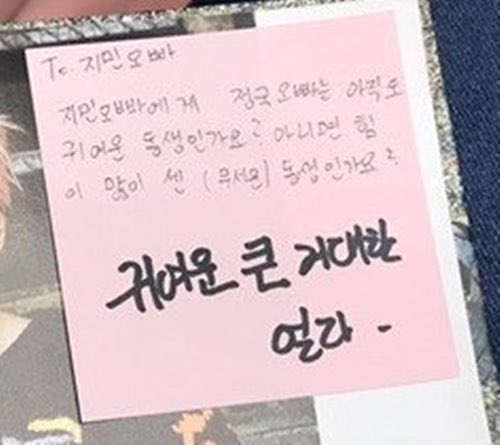 To. 지민오빠
지민오빠에게 정국오빠는 아직도
귀여운 동생인가요? 아니면 힘
이 많이 센 (무서운) 동생인가요?
귀여운 큰 거대한
얼라 -